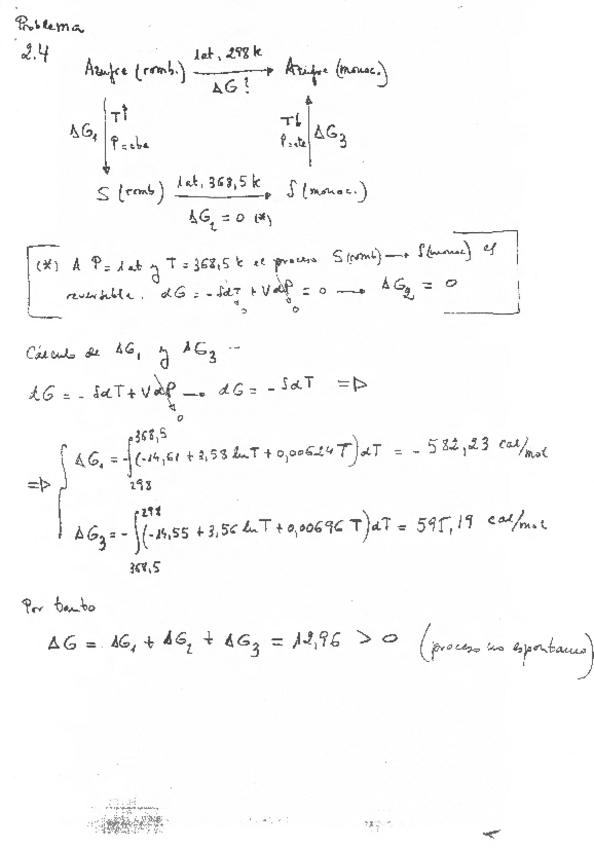 Problema
2.4
Azufre (romb.) 1at, 298 k → Azufre (monoc.)
ΔG?
ΔG₁ T↑ P=cte T↓ P=cte ΔG₃
S (romb) 1at, 368,5 k → S (monoc.)
ΔG₂ = 0 (*)
(*) A P = 1at y T = 368,5 k el proceso S(romb) → S(monoc) es
reversible. dG = -SdT + VdP = 0 → ΔG₂ = 0
0 0
Cálculo de ΔG₁ y ΔG₃
dG = - SdT + VdP → dG = - SdT ⇒
0
⇒ { ΔG₁ = -∫₂₉₈^368,5 (-14,61 + 3,58 lnT + 0,00624 T) dT = - 582,23 cal/mol
ΔG₃ = -∫₃₆₈,₅^298 (-14,55 + 3,56 lnT + 0,00696 T) dT = 595,19 cal/mol
Por tanto
ΔG = ΔG₁ + ΔG₂ + ΔG₃ = 12,96 > 0 (proceso no espontaneo)